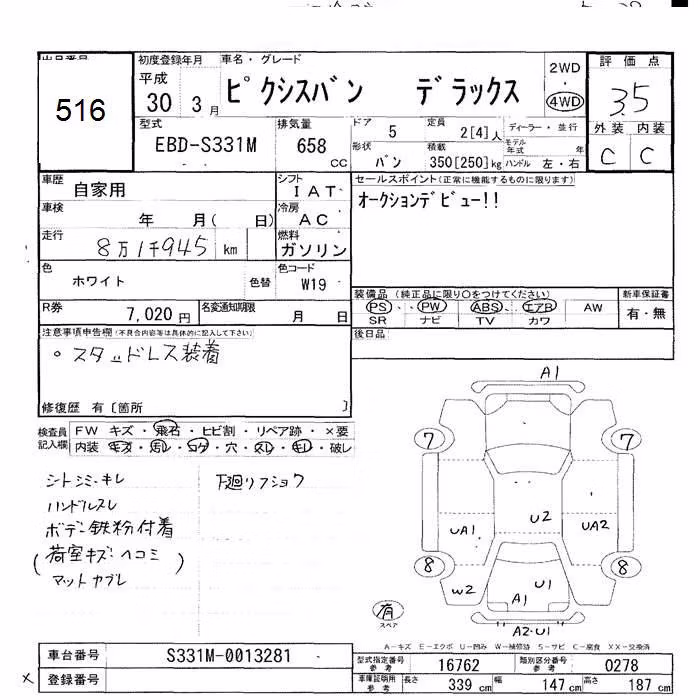 516
初度登録年月
平成
30 3月
車名・グレード
ピクシスバン デラックス
2WD
・
4WD
評価点
3.5
外装 内装
C C
型式
EBD-S331M
排気量
658 CC
ドア 5
定員 2[4]人
形状 バン
積載 350[250]kg
ディーラー・並行
モデル年式 年
ハンドル 左・右
車歴
自家用
シフト
IAT
車検
年 月( 日)
冷房
AC
走行
8万1千945 km
燃料
ガソリン
色
ホワイト 色替
色コード
W19
R券
7,020円
名変通知期限
月 日
セールスポイント(正常に機能するものに限ります)
オークションデビュー!!
装備品 (純正品に限り○をつけてください)
PS PW ABS エアB AW
SR ナビ TV カワ
新車保証書
有・無
後日品
注意事項申告欄(不具合内容等は具体的に記入して下さい)
。スタッドレス装着
修復歴 有〔箇所 〕
検査員記入欄
FW キズ・飛石・ヒビ割・リペア跡・×要
内装 キズ・汚レ・コゲ・穴・スレ・キレ・破レ
シートシミ・キレ
ハンドルスレ
ボデー鉄粉付着
(荷室キズ・ヘコミ)
マットカブレ
下廻リフショク
A1
7 7
UA1 U2 UA2
8 8
W2 A1 U1
A2・U1
有
スペア
A-キズ E-エクボ U-凹み W-補修跡 S-サビ C-腐食 XX-交換済
車台番号 S331M-0013281
× 登録番号
型式指定番号参考 16762
類別区分番号参考 0278
車庫証明用参考
長さ 339 cm 幅 147 cm 高さ 187 cm